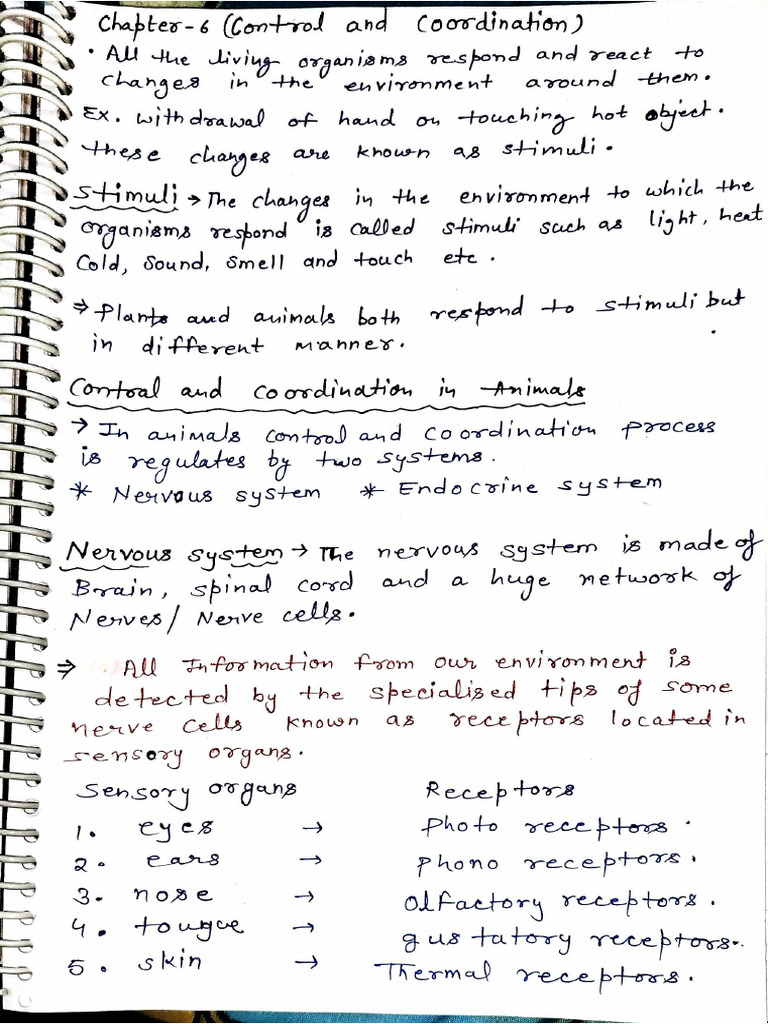 Chapter-6 (Control and Coordination)
• All the living organisms respond and react to
changes in the environment around them.
Ex. withdrawal of hand on touching hot object.
these changes are known as stimuli.
Stimuli → The changes in the environment to which the
organisms respond is called stimuli such as light, heat
Cold, Sound, Smell and touch etc.
⇒ Plants and animals both respond to stimuli but
in different manner.
Control and coordination in Animals
→ In animals control and coordination process
is regulates by two systems.
* Nervous system * Endocrine system
Nervous system → The nervous system is made of
Brain, spinal cord and a huge network of
Nerves/ Nerve cells.
⇒ All Information from our environment is
detected by the specialised tips of some
nerve cells known as receptors located in
sensory organs.
Sensory organs Receptors
1. eyes → Photo receptors.
2. ears → phono receptors.
3. nose → Olfactory receptors.
4. tongue → gustatory receptors.
5. skin → Thermal receptors.